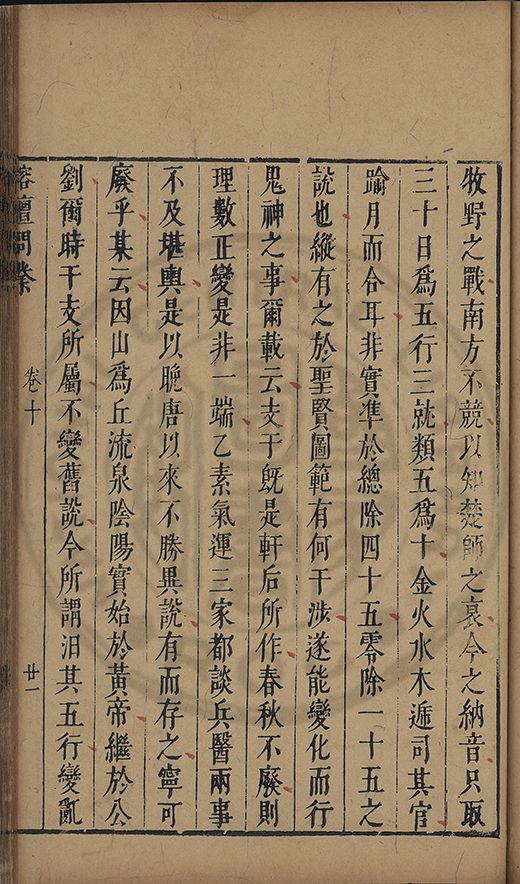 牧野之戰南方不競以知楚師之衰今之納音只取
三十日爲五行三就類五爲十金火水木遞司其官
踰月而合耳非實準於總除四十五零除一十五之
說也縱有之於聖賢圖範有何干涉遂能變化而行
鬼神之事爾載云支干既是軒后所作春秋不廢則
理數正變是非一端乙素氣運三家都談兵醫兩事
不及堪輿是以晚唐以來不勝異說有而存之寧可
廢乎某云因山爲丘流泉陰陽實始於黃帝繼於公
劉爾時干支所屬不變舊說今所謂汨其五行變亂
榕壇問業
卷十
廿一